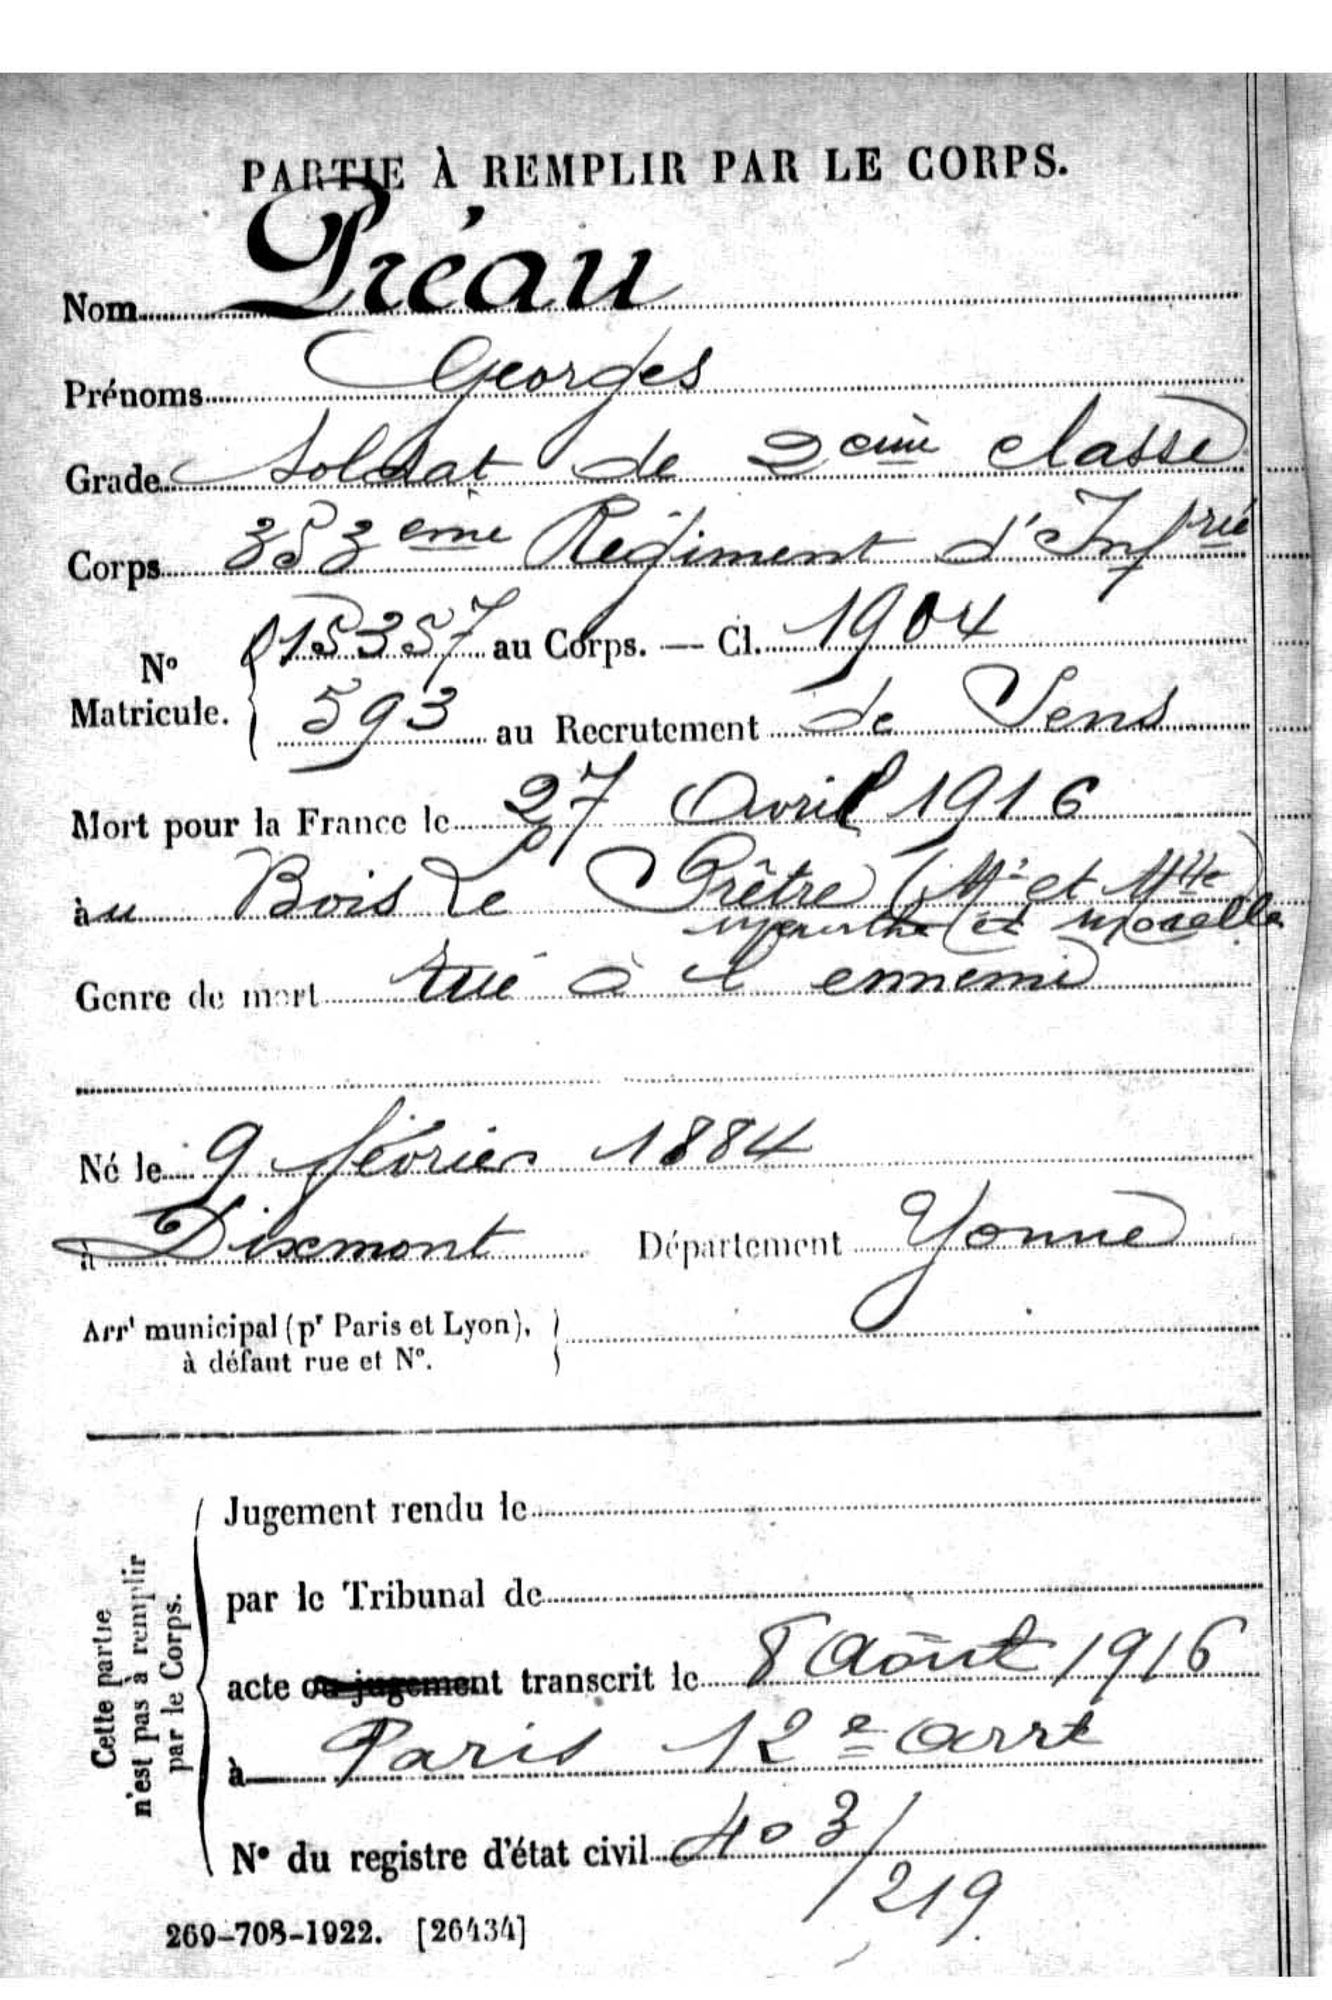 PARTIE À REMPLIR PAR LE CORPS.
Nom Préau
Prénoms Georges
Grade Soldat de 2eme classe
Corps 353eme Régiment d'Infrie
No Matricule. { 015357 au Corps. — Cl. 1904
593 au Recrutement de Sens
Mort pour la France le 27 Avril 1916
au Bois Le Prêtre (Mthe et Mlle)
Meurthe et Moselle
Genre de mort tué à l'ennemi
Né le 9 février 1884
à Dixmont Département Yonne
Arrt municipal (pr Paris et Lyon),
à défaut rue et N°.
Cette partie
n'est pas à remplir
par le Corps.
Jugement rendu le
par le Tribunal de
acte ou jugement transcrit le 8 Août 1916
à Paris 12e arrt
N° du registre d'état civil 403/
219
269-708-1922. [26434]